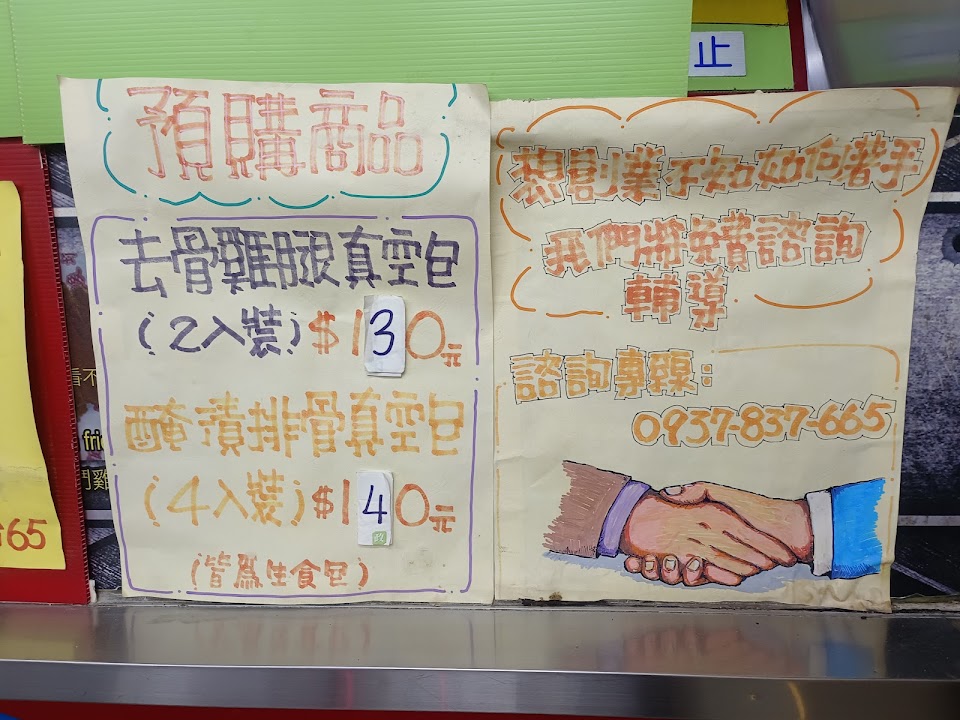 止
預購商品
去骨雞腿真空包
(2入裝)$130元
醃漬排骨真空包
(4入裝)$140元
(皆為生食包)
想創業不知如何著手
我們將免費諮詢
輔導
諮詢專線:
0937-837-665
看不
frie
門雞
$65